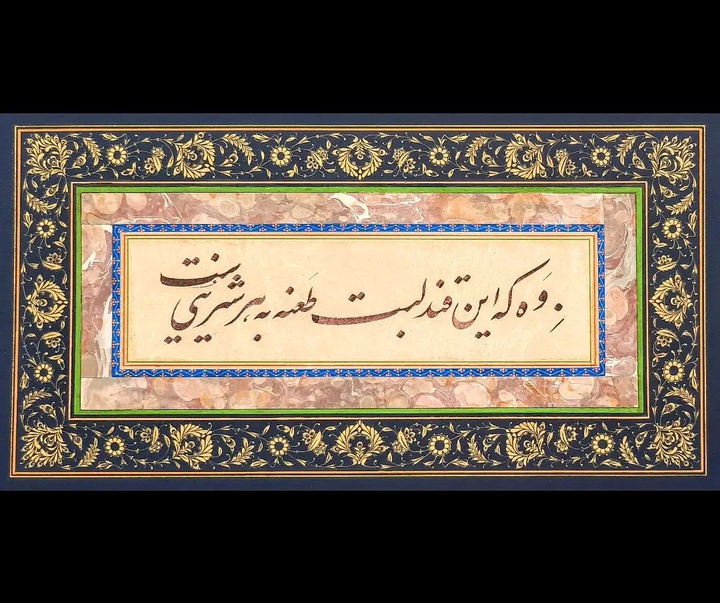 وَه که این قند لبت طَعنه به هر شیرینی‌ست